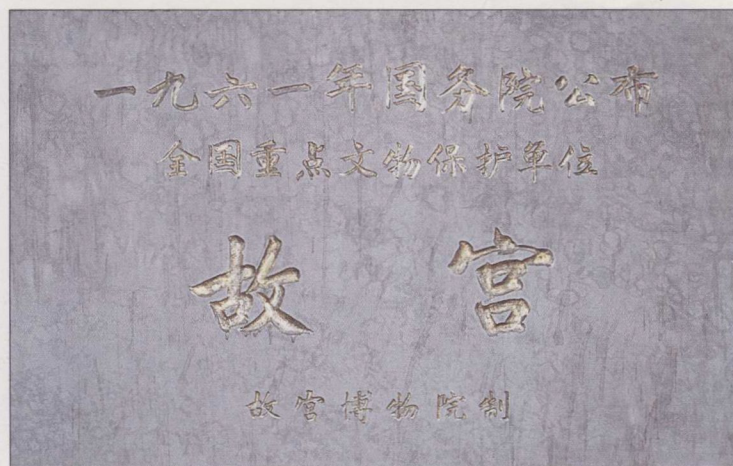 一九六一年国务院公布
全国重点文物保护单位
故宫
故宫博物院制